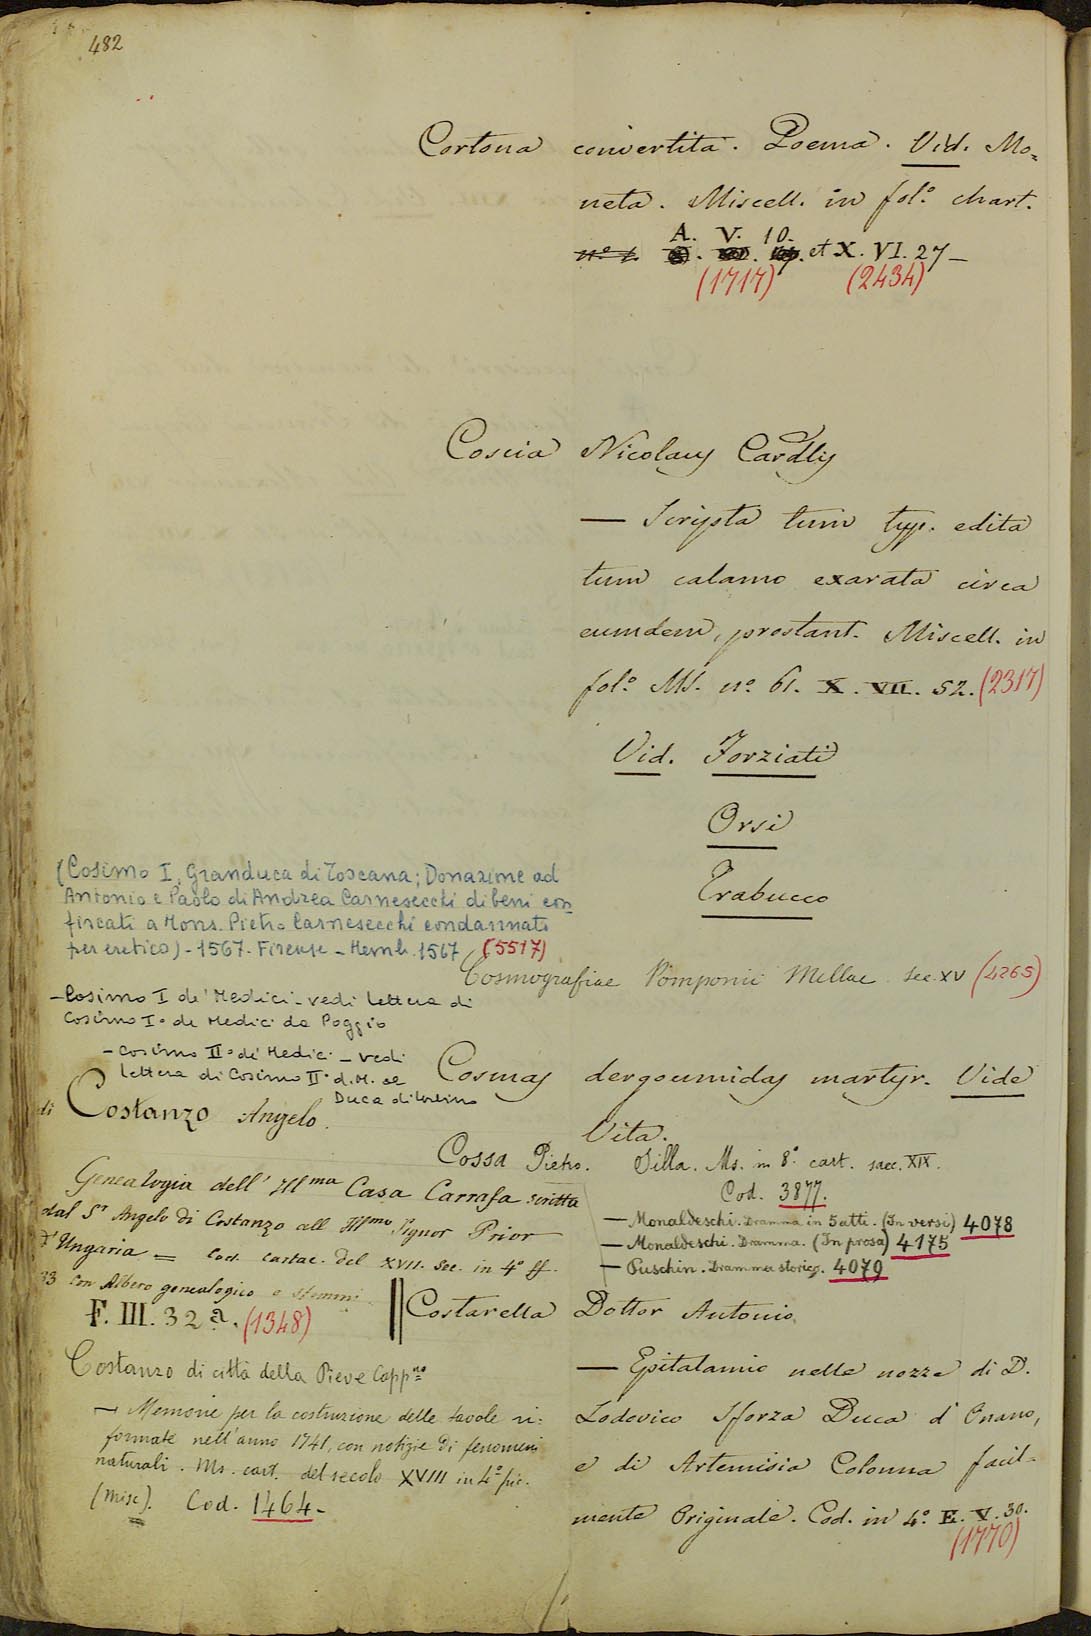 482
Cortona convertita. Poema. Vid. Mo=
neta. Miscell. in fol.º chart.
A. V. 10.
nº 1. et X. VI. 27 –
(1717) (2434)
Coscia Nicolaus Cardlis
— Scripta tum typ. edita
tum calamo exarata circa
eumdem, prostant. Miscell. in
fol.º MS. nº 61. X. VII. 52. (2317)
Vid. Forziati
Orsi
Trabucco
(Cosimo I, Granduca di Toscana; Donazione ad
Antonio e Paolo di Andrea Carnesecchi di beni con
fiscati a Mons. Pietro Carnesecchi condannato
per eretico) - 1567. Firenze - Memb. 1567 (5517)
Cosmografiae Pomponii Mellae sec. XV (4265)
– Cosimo I de' Medici - vedi lettera di
Cosimo I.º de Medici da Poggio
– Cosimo II.º de' Medici – vedi
lettera di Cosimo IIº. d. M. al
Duca di Urbino
Cosmas dergoumidas martyr. Vide
Vita.
di Costanzo Angelo.
Genealogia dell' Illma Casa Carrafa scritta
dal Sr Angelo di Costanzo all Illmo Signor Prior
d'Ungaria = Cod. cartac. del XVII. Sec. in 4º ff.
33 con Albero genealogico e stemmi
F. III. 32 a. (1348)
Cossa Pietro. Silla. Ms. in 8.º cart. saec. XIX.
Cod. 3877.
— Monaldeschi. Dramma in 5 atti. (In versi) 4078
— Monaldeschi. Dramma. (In prosa) 4175
— Puschin. Dramma storico. 4079
Costarella Dottor Antonio
— Epitalamio nelle nozze di D.
Lodovico Sforza Duca d'Onano,
e di Artemisia Colonna facil=
mente Originale. Cod. in 4.º E. V. 30.
(1770)
Costanzo di città della Pieve Capp.no
— Memorie per la costruzione delle tavole ri=
formate nell'anno 1741, con notizie di fenomeni
naturali. Ms. cart. del secolo XVIII in 4.º pic.
(Misc). Cod. 1464 –